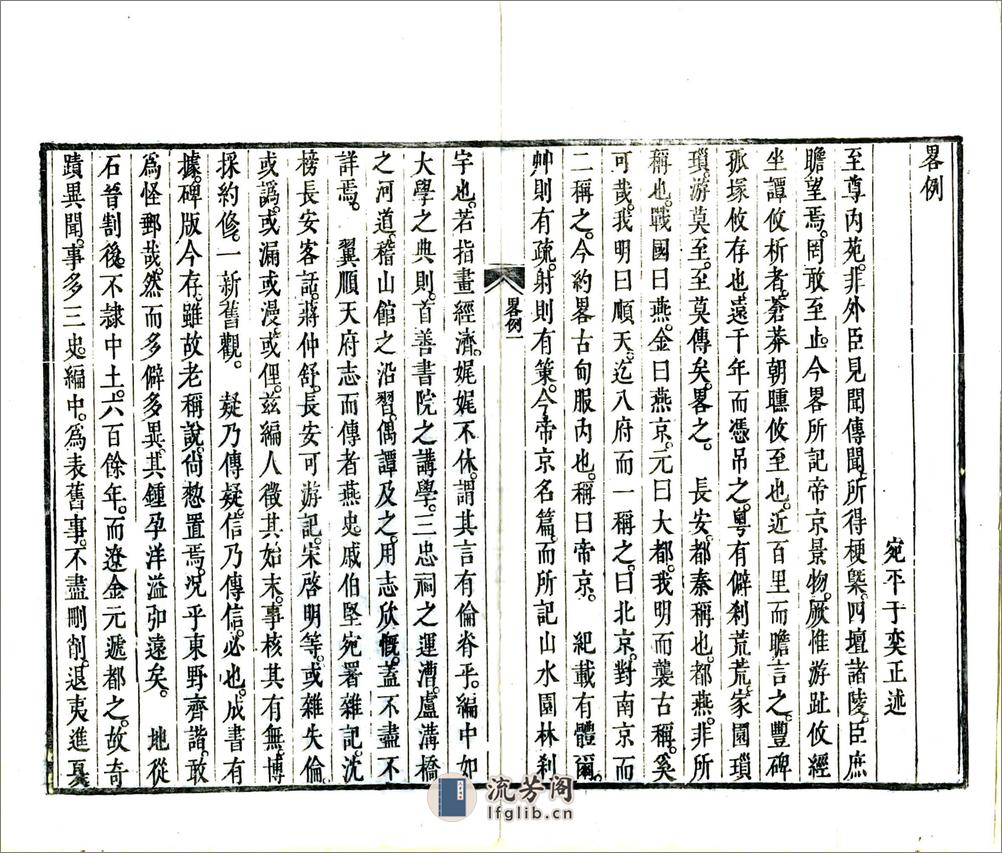 畧例
宛平于奕正述
至尊內苑。非外臣見聞傳聞。所得梗槩。四壇諸陵。臣庶
瞻望焉。罔敢至止。今畧所記帝京景物。厥惟游趾攸經
坐譚攸析者。蒼莽朝曛攸至也。近百里而瞻言之。豐碑
孤塚攸存也。遠千年而憑吊之。粵有僻刹荒荒。家園瑣
瑣。游莫至。至莫傳矣。畧之。　長安。都秦稱也。都燕。非所
稱也。戰國曰燕。金曰燕京。元曰大都。我明而襲古稱。奚
可哉。我明曰順天。迄八府而一稱之。曰北京。對南京而
二稱之。今約畧古甸服內也。稱曰帝京。　紀載有體爾。
艸則有疏。射則有策。今帝京名篇。而所記山水園林刹
畧例一
宇也。若指畫經濟。娓娓不休。謂其言有倫脊乎。編中如
大學之典則。首善書院之講學。三忠祠之運漕。盧溝橋
之河道。稽山館之沿習。偶譚及之。用志欣慨。蓋不盡不
詳焉。　翼順天府志而傳者。燕史。戚伯堅宛署雜記。沈
榜長安客話。蔣仲舒。長安可游記。宋啓明等。或雜失倫
或譌。或漏。或漫。或俚。茲編人徵其始末。事核其有無。博
採約修。一新舊觀。　疑乃傳疑。信乃傳信。必也。成書有
據。碑版今存。雖故老稱說。尙愁置焉。况乎東野齊諧。敢
爲怪郵哉。然而多僻多異。其鍾孕洋溢弥遠矣。　地從
石晉割後。不隷中土。六百餘年。而遼金元遞都之。故奇
蹟異聞。事多三史。編中。爲表舊事。不盡刪削。退夷進夏
流芳阁
lfglib.cn